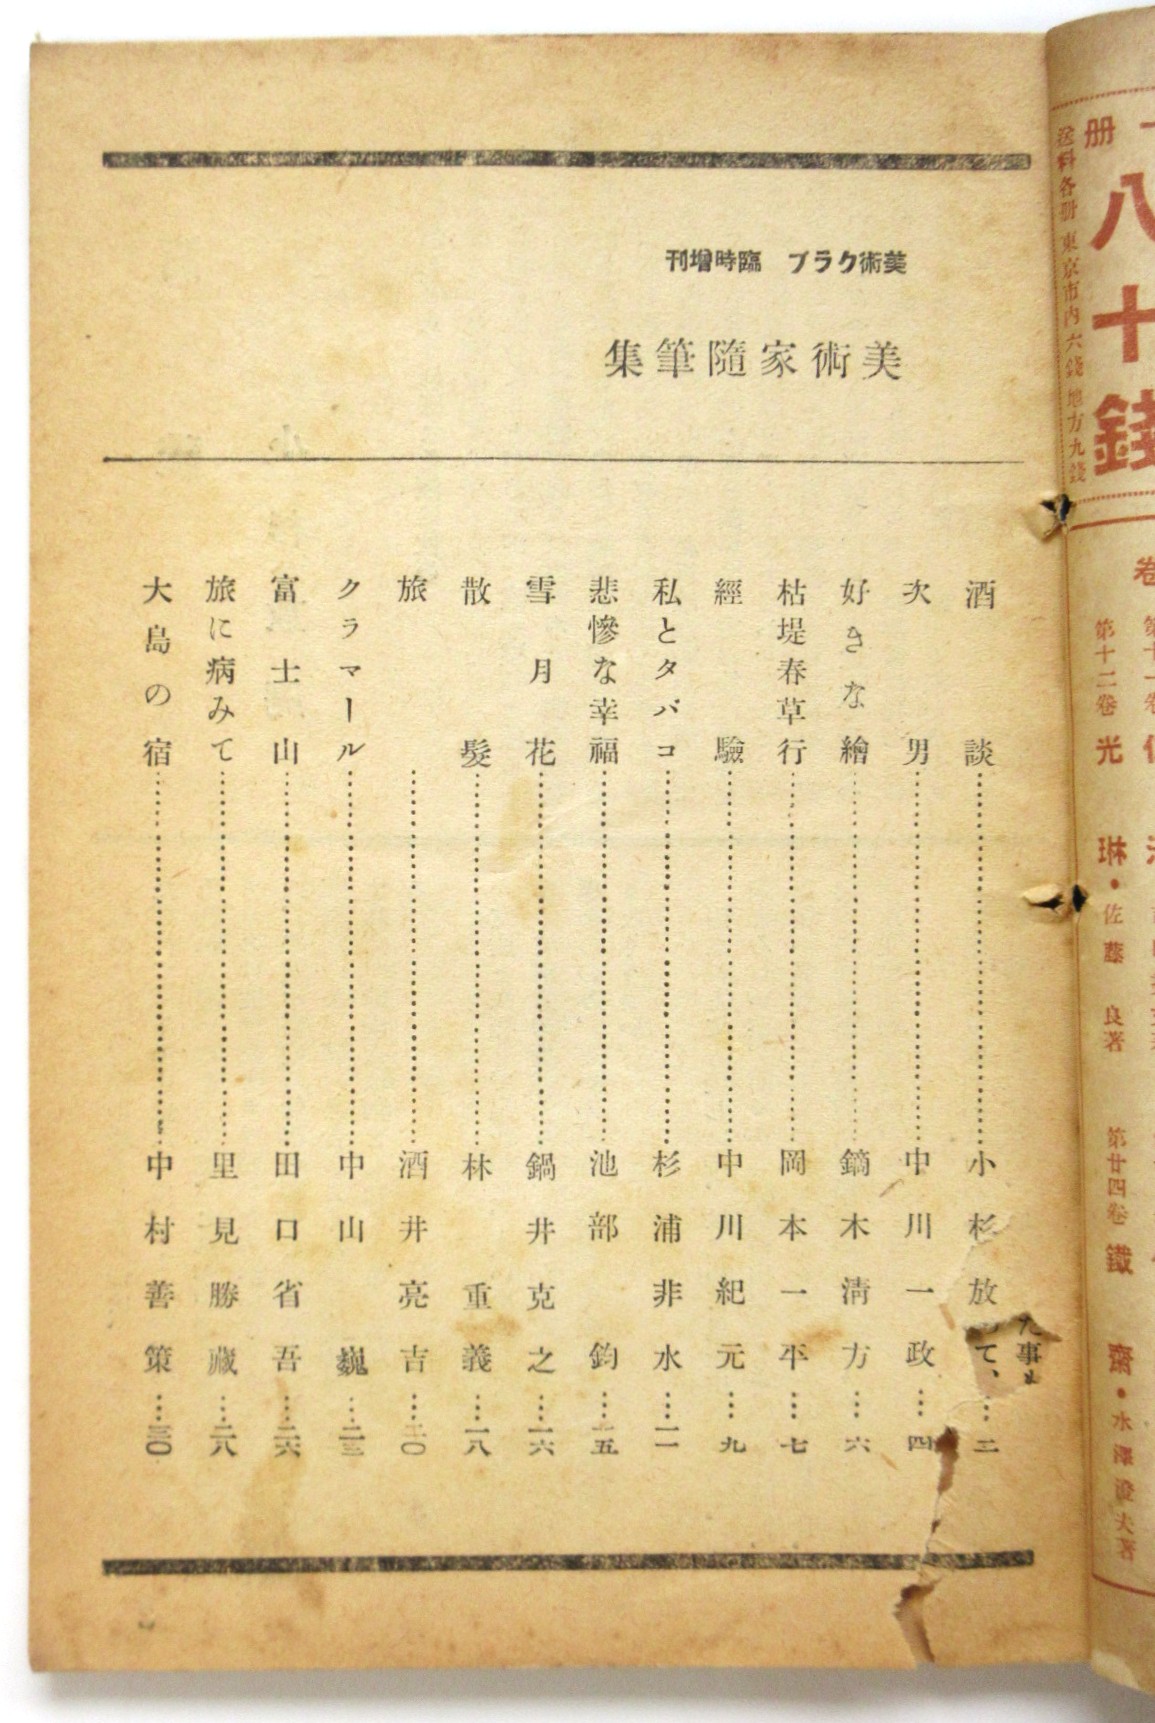 一册
八十錢
送料各册 東京市内六錢 地方九錢
第十二卷 光琳・佐藤 良著
第廿四卷 鐵齋・水澤澄夫著
美術クラブ 臨時增刊
美術家隨筆集
酒談……小杉放……二
た事
て、
次男……中川一政……四
好きな繪……鏑木淸方……六
枯堤春草行……岡本一平……七
經驗……中川紀元……九
私とタバコ……杉浦非水……一一
悲慘な幸福……池部鈞……一五
雪月花……鍋井克之……一六
散髮……林重義……一八
旅……酒井亮吉……二〇
クラマール……中山巍……二三
富士山……田口省吾……二六
旅に病みて……里見勝藏……二八
大島の宿……中村善策……三〇